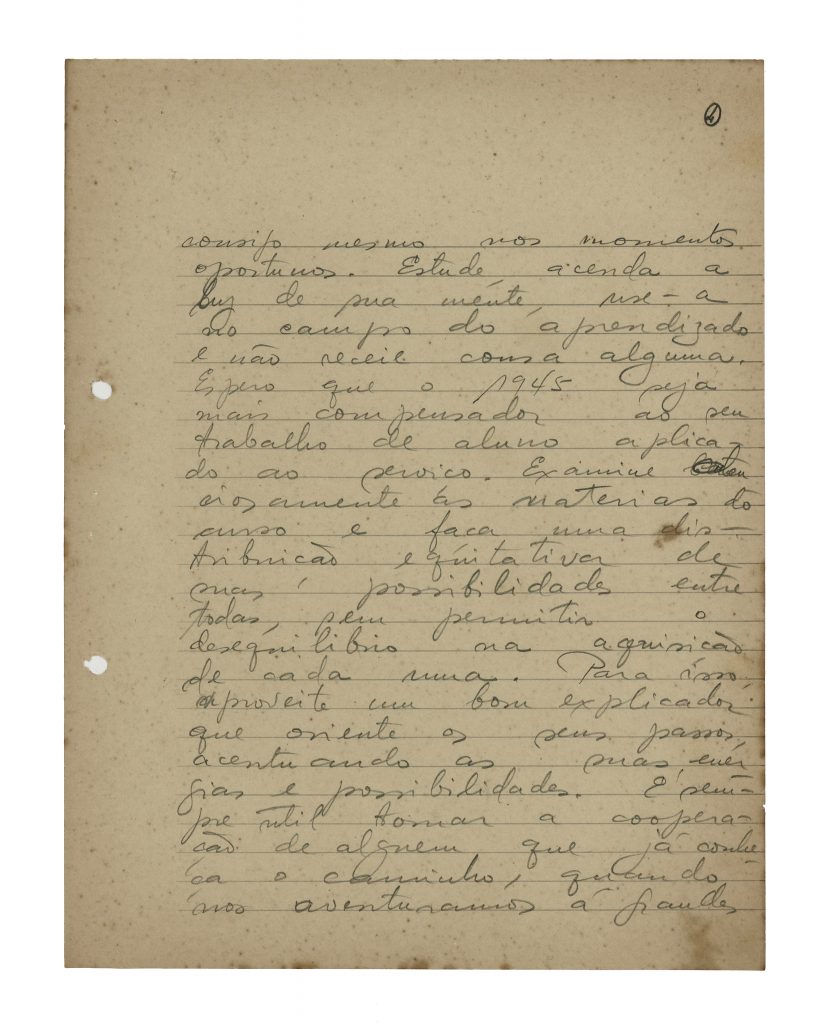 consigo mesmo nos momentos
oportunos. Estude, acenda a
luz de sua mente, use-a
no campo do aprendizado
e não receie cousa alguma.
Espero que o 1945 seja
mais compensador ao seu
trabalho de aluno aplica-
do ao serviço. Examine aten
ciosamente as materias do
curso e faca uma dis-
tribuicão equitativa de
suas possibilidades entre
todas, sem permitir o
desequilibrio na aquisicão
de cada uma. Para isso,
aproveite um bom explicador
que oriente os seus passos,
acentuando as suas ener
gias e possibilidades. É sem-
pre útil tomar a coopera-
cão de alguem que já conhe
ca o caminho, quando
nos aventuramos á grandes